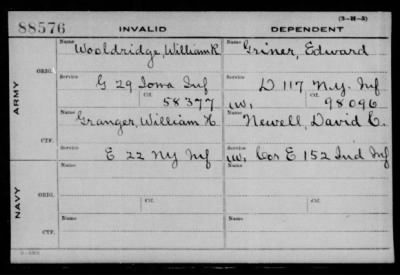 (3-H-5)
88576 INVALID DEPENDENT
Name Name
Wooldridge, William R Griner, Edward
ORIG. Service Service
G 29 Iowa Inf D 117 N.Y. Inf
Ctf. Ctf.
58377 W, 98096
ARMY
Name Name
Granger, William H Newell, David C.
CTF. Service Service
E 22 NY Inf W, Cos E 152 Ind Inf
NAVY
Name Name
ORIG. Service Ctf. Service Ctf.
Name Name
CTF.